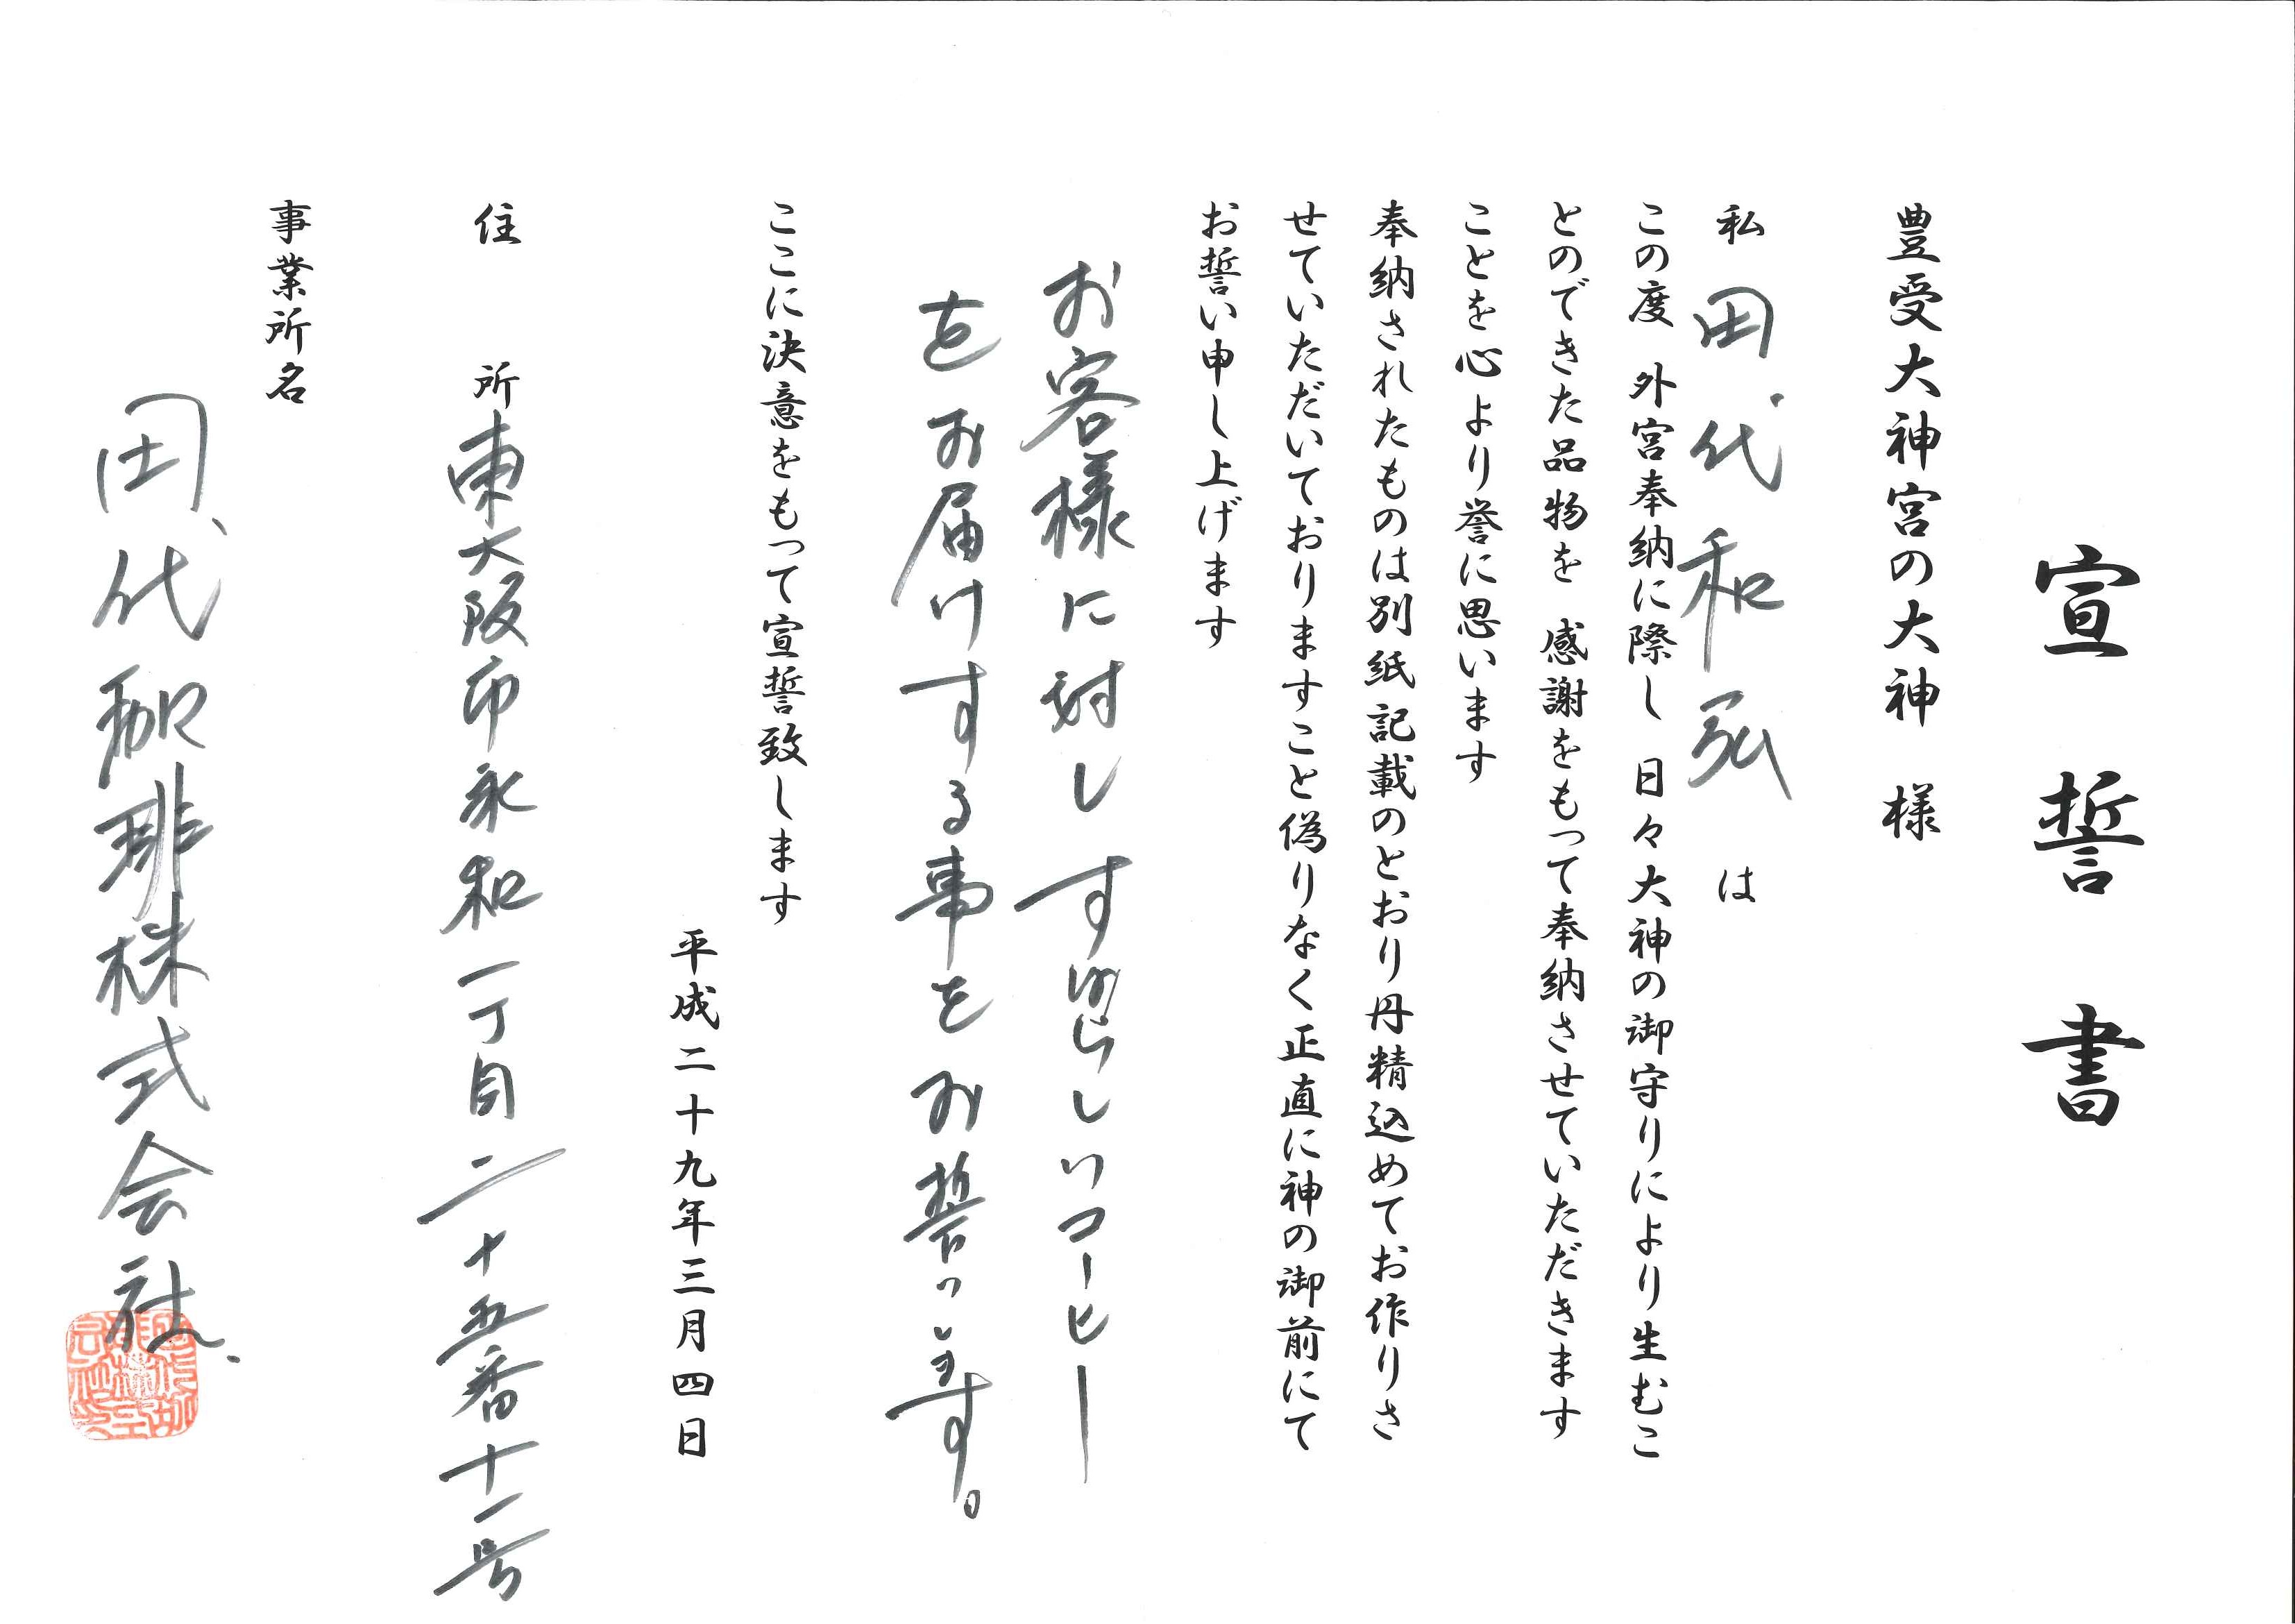 宣誓書
豊受大神宮の大神 様
私 田代和弘 は
この度 外宮奉納に際し 日々大神の御守りにより生むこ
とのできた品物を 感謝をもって奉納させていただきます
ことを心より誉に思います
奉納されたものは別紙記載のとおり丹精込めてお作りさ
せていただいておりますこと偽りなく正直に神の御前にて
お誓い申し上げます
お客様に対しすばらしいコーヒー
をお届けする事をお誓いします。
ここに決意をもって宣誓致します
平成二十九年三月四日
住 所 東大阪市永和一丁目二十五番十一号
事業所名
田代珈琲株式会社